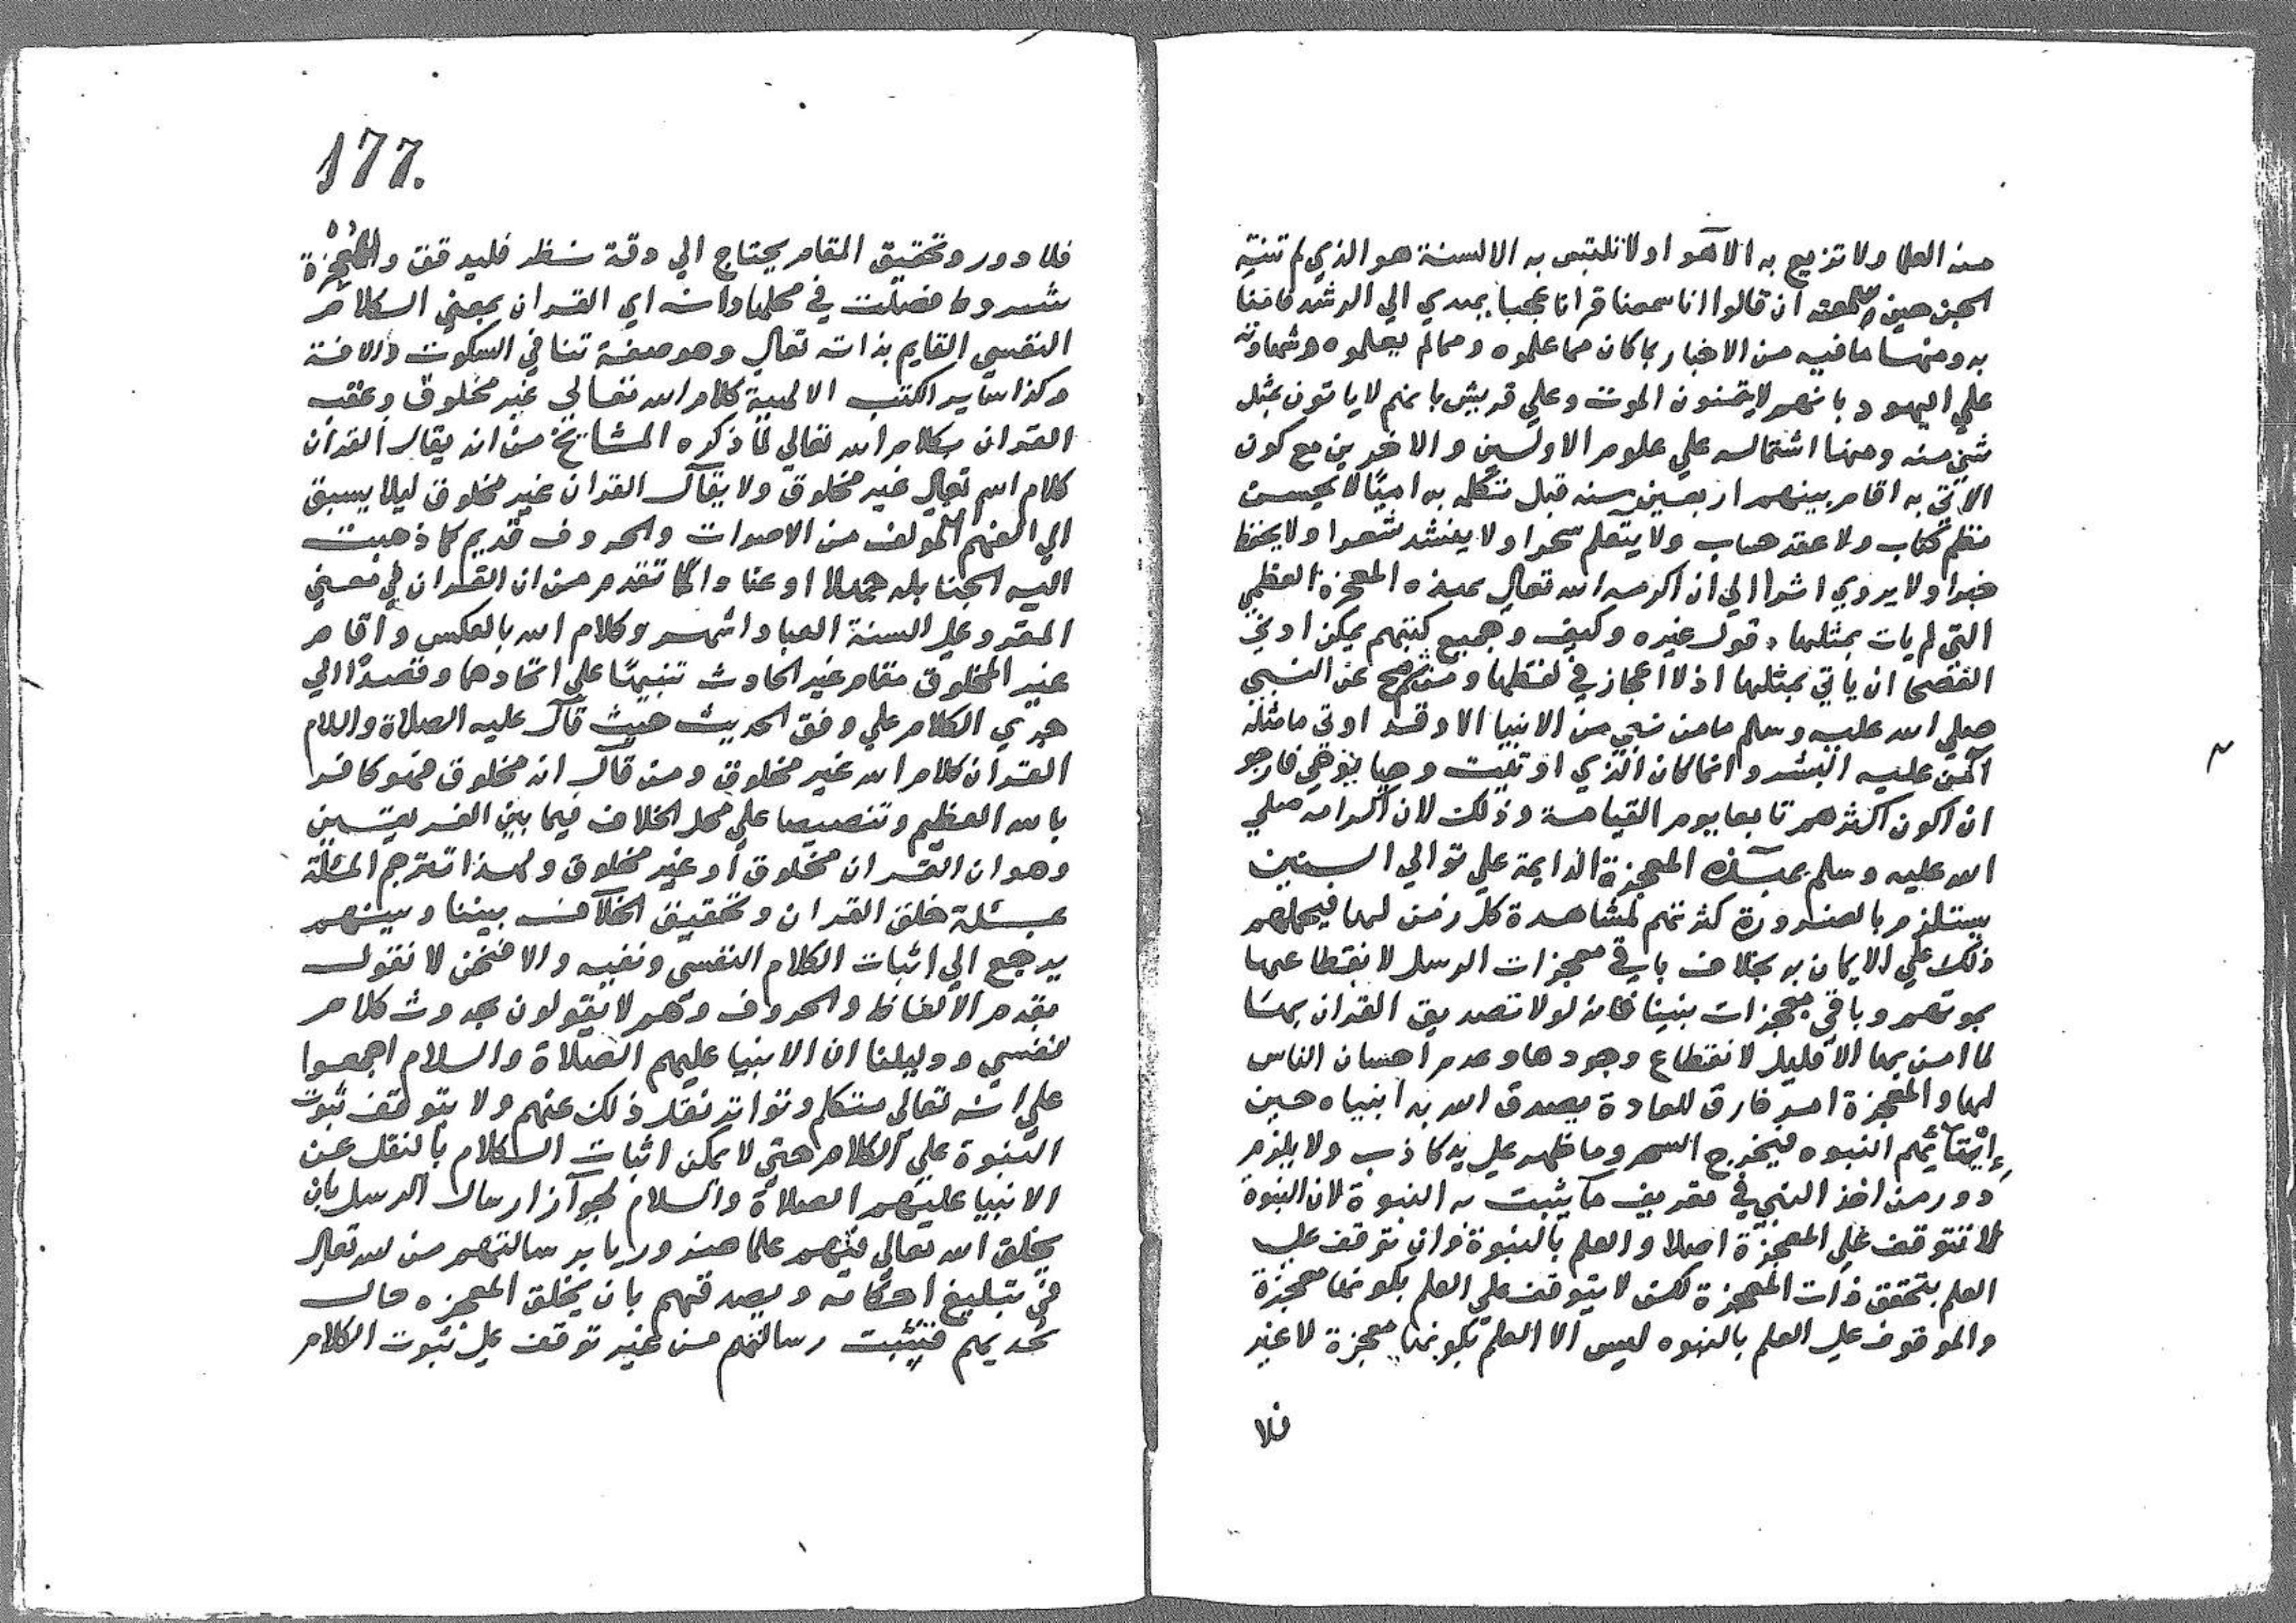 منه العلما ولا تزيع به الآهوا ولا تلتبس به الالسنة هو الذي لم تنته
الجن حين سمعته ان قالوا انا سمعنا قرانا عجبا يهدي الي الرشد فامنا
به ومنها ما فيه من الاخبار بما كان مما علموه ومما لم يعلموه وشهادته
علي اليهود بانهم لا يتمنون الموت وعلي قريش بانهم لا ياتون بمثل
شي منه ومنها اشتماله علي علوم الاولين والاخرين مع كون
الاتي به اقام بينهم اربعين سنه قبل تكلمه به اميًا لا يحسن
نظم كتاب ولا عقد حساب ولا يتعلم سحرا ولا ينشد شعرا ولا يحفظ
خبرا ولا يروي اثرا الي ان اكرمه الله تعالي بهذه المعجزة العظمي
التي لم يات بمثلها رسول غيره وكيف وجميع كتبهم يمكن ادني
الفصحا ان ياتي بمثلها اذ لا اعجاز في لفظها ومن ثم صح عن النبي
صلي الله عليه وسلم ما من نبي من الانبيا الا وقد اوتي ما مثله
آمن عليه البشر وانما كان الذي اوتيت وحيا يوحي فارجو
ان اكون اكثرهم تابعا يوم القيامة وذلك لان اكرامه صلي
الله عليه وسلم بهذه المعجزة الدايمة علي توالي السنين
يستلزم بالضرورة كثرتهم لمشاهدة كل زمن لها فيحملهم
ذلك علي الايمان به بخلاف باقي معجزات الرسل لانقطاعها
بموتهم وباقي معجزات نبينا فانه لولا تصديق القران بها
لما امن بها الا قليل لانقطاع وجودها وعدم احساس الناس
لها والمعجزة امر خارق للعادة يصدق الله به انبياه حين
النبوه فيخرج السحر وما ظهر علي يد كاذب ولا يلزم
دور من اخذ النبي في تعريف ما يثبت به النبوة لان النبوة
لا تتوقف علي المعجزة اصلا والعلم بالنبوة وان توقف علي
العلم بتحقق ذات المعجزة لكن لا يتوقف علي العلم بكونها معجزة
والموقوف علي العلم بالنبوه ليس الا العلم بكونها معجزة لا غير
فلا
177.
فلا دور وتحقيق المقام يحتاج الي دقة نظر فليدقق والمعجزة
شروط فصلت في محلها وانه اي القران بمعني الكلام
النفسي القايم بذاته تعالي وهو صفة تنافي السكوت والافة
وكذا ساير الكتب الالهية كلام الله تعالي غير مخلوق وعقب
القران بكلام الله تعالي لما ذكره المشايخ من ان يقال القرآن
كلام الله تعالي غير مخلوق ولا يقال القران غير مخلوق ليلا يسبق
الي الفهم المولف من الاصوات والحروف قديم كما ذهبت
اليه الحنابلة جهلا او عنادا لما تقدم من ان القران في معني
المقرو علي السنة العباد اشهر وكلام الله بالعكس واقام
غير المخلوق مقام غير الحادث تنبيهًا علي اتحادهما وقصدًا الي
جري الكلام علي وفق الحديث حيث قال عليه الصلاة والسلام
القرآن كلام الله غير مخلوق ومن قال انه مخلوق فهو كافر
بالله العظيم وتنصيصا علي محل الخلاف فيما بين الفريقين
وهو ان القران مخلوق أو غير مخلوق ولهذا تترجم المسئلة
بمسئلة خلق القران وتحقيق الخلاف بيننا وبينهم
يرجع الي اثبات الكلام النفسي ونفيه والا فنحن لا نقول
بقدم الالفاظ والحروف وهم لا يقولون بحدوث كلام
نفسي ودليلنا ان الانبيا عليهم الصلاة والسلام اجمعوا
علي انه تعالي متكلم وتواتر نقل ذلك عنهم ولا يتوقف ثبوت
النبوة علي الكلام حتي لا يمكن اثبات الكلام بالنقل عن
الانبيا عليهم الصلاة والسلام لجواز ارسال الرسل بان
يخلق الله تعالي فيهم علما ضروريا برسالتهم من الله تعالي
في تبليغ احكامه ويصدقهم بان يخلق المعجزه حال
تحديهم فتثبت رسالتهم من غير توقف علي ثبوت الكلام